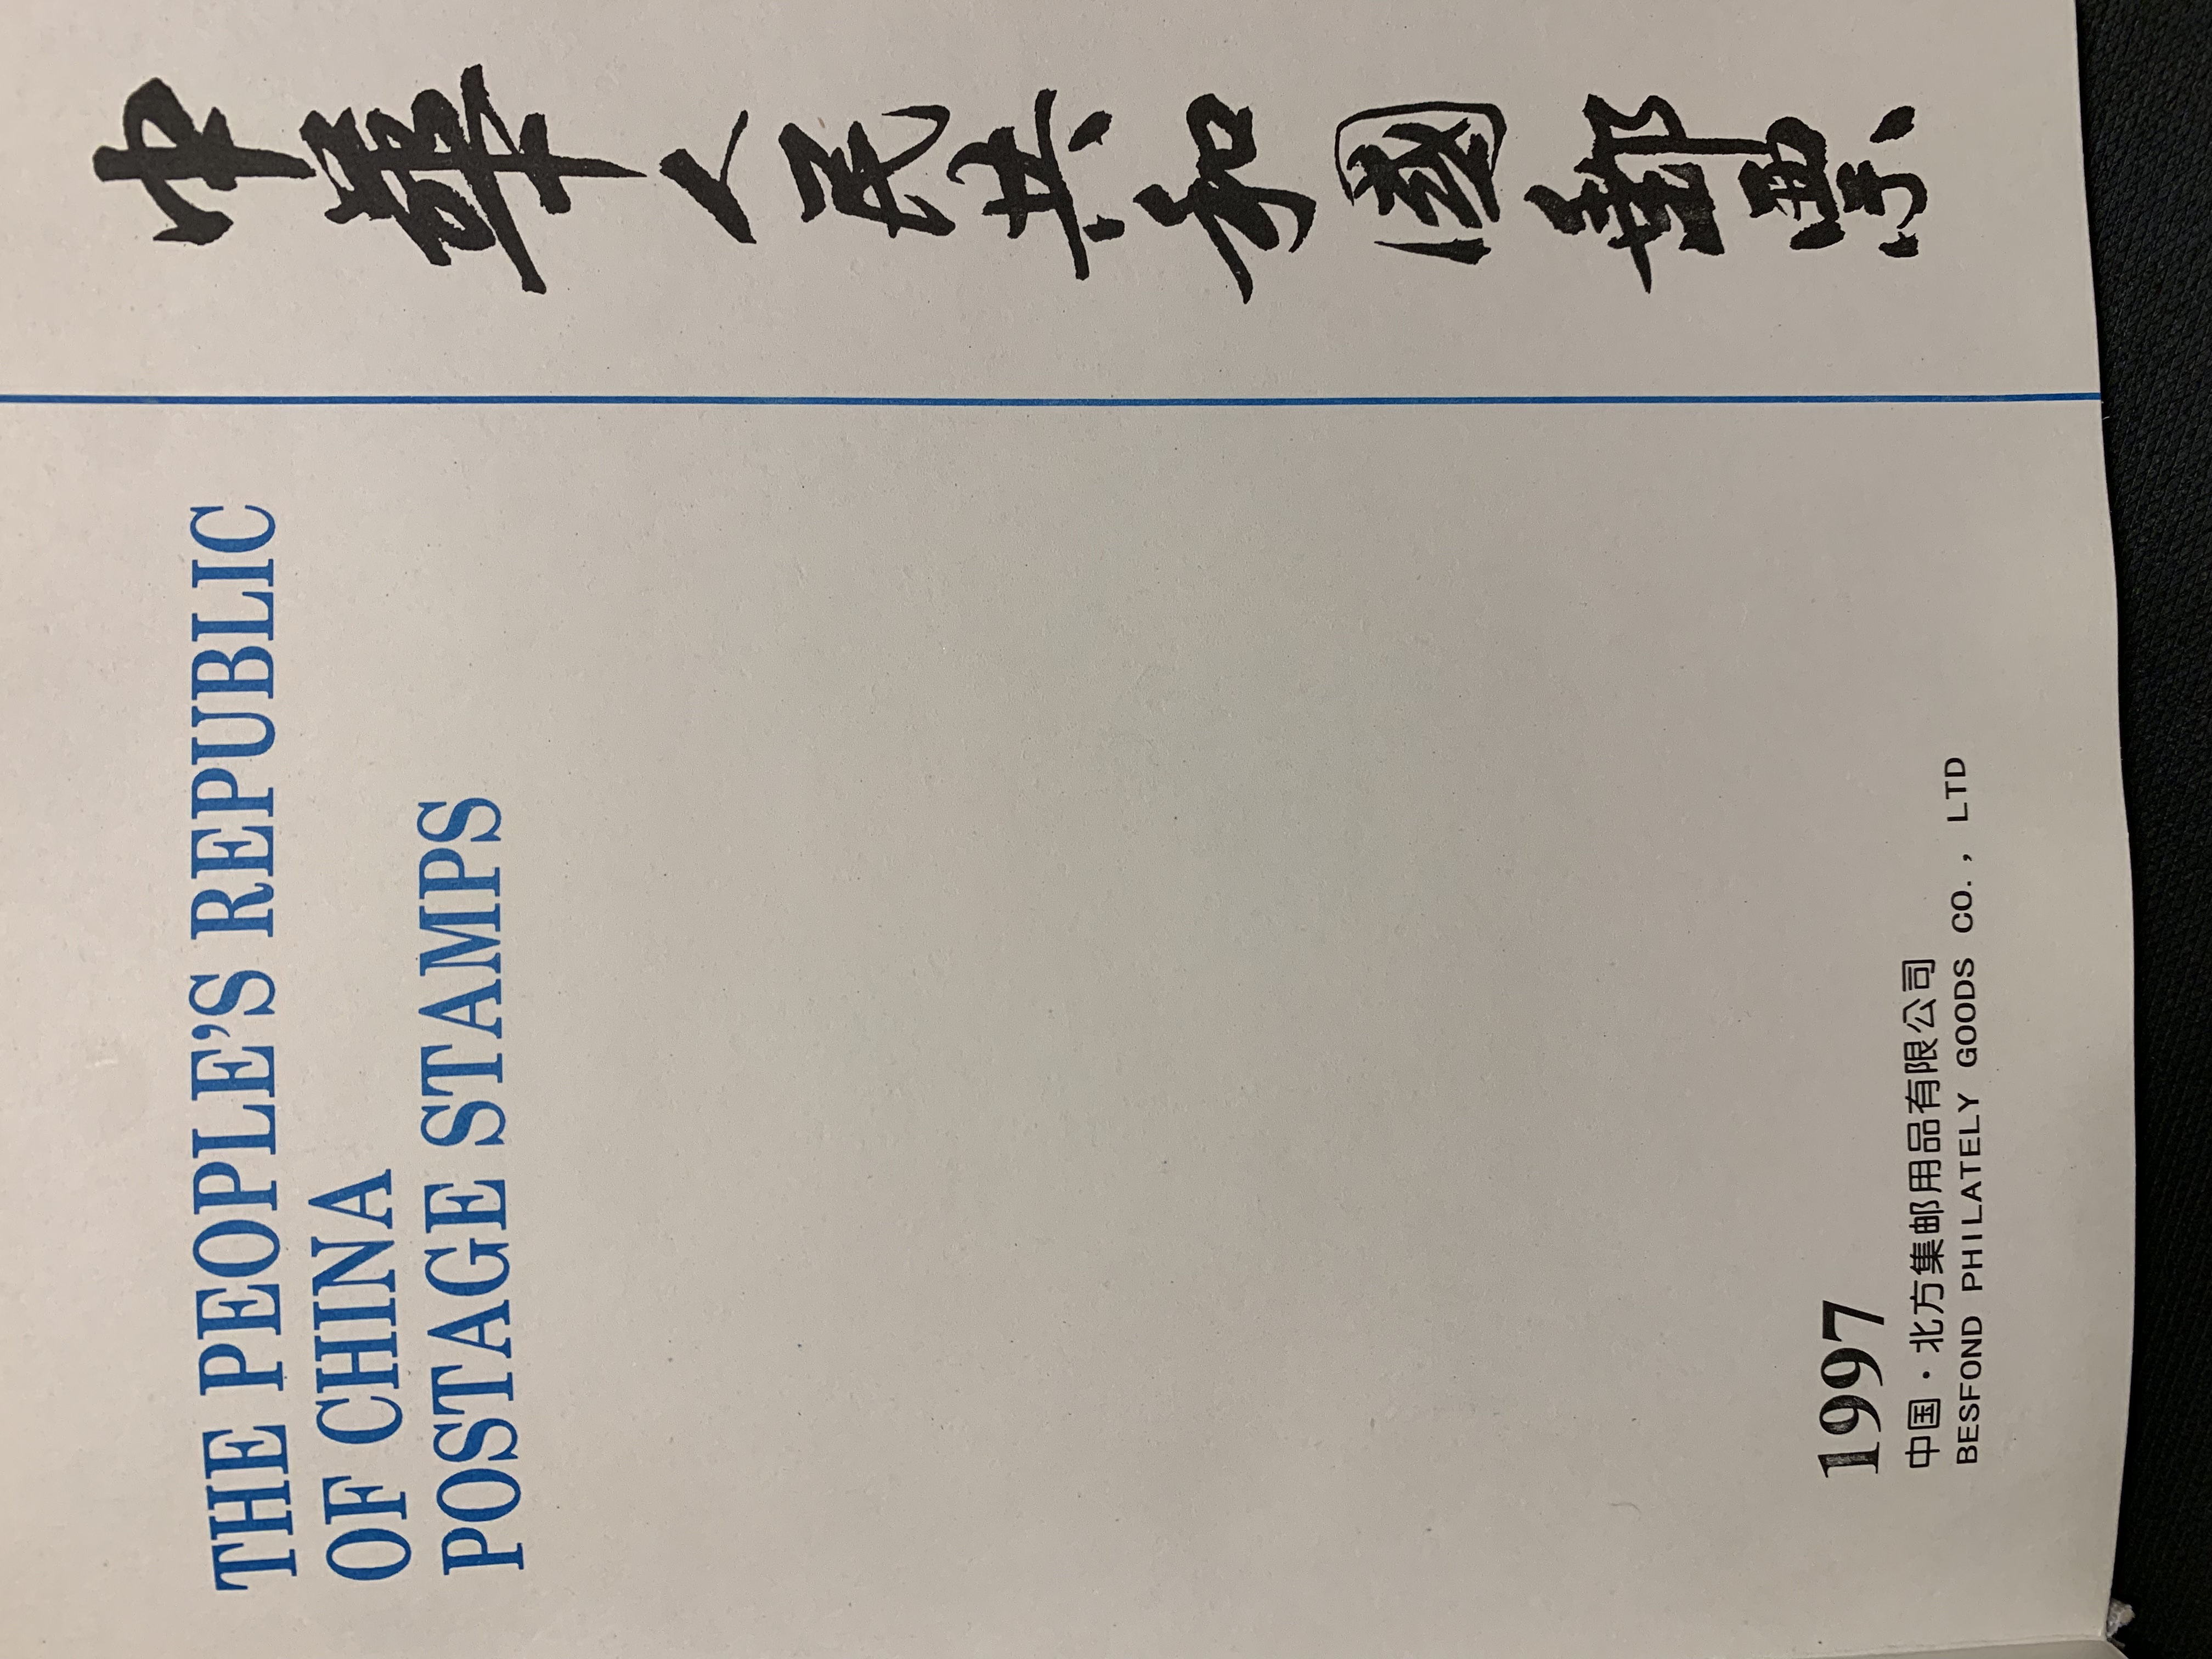 THE PEOPLE'S REPUBLIC
OF CHINA
POSTAGE STAMPS
中華人民共和國郵票
1997
中国·北方集邮用品有限公司
BESFOND PHILATELY GOODS CO., LTD